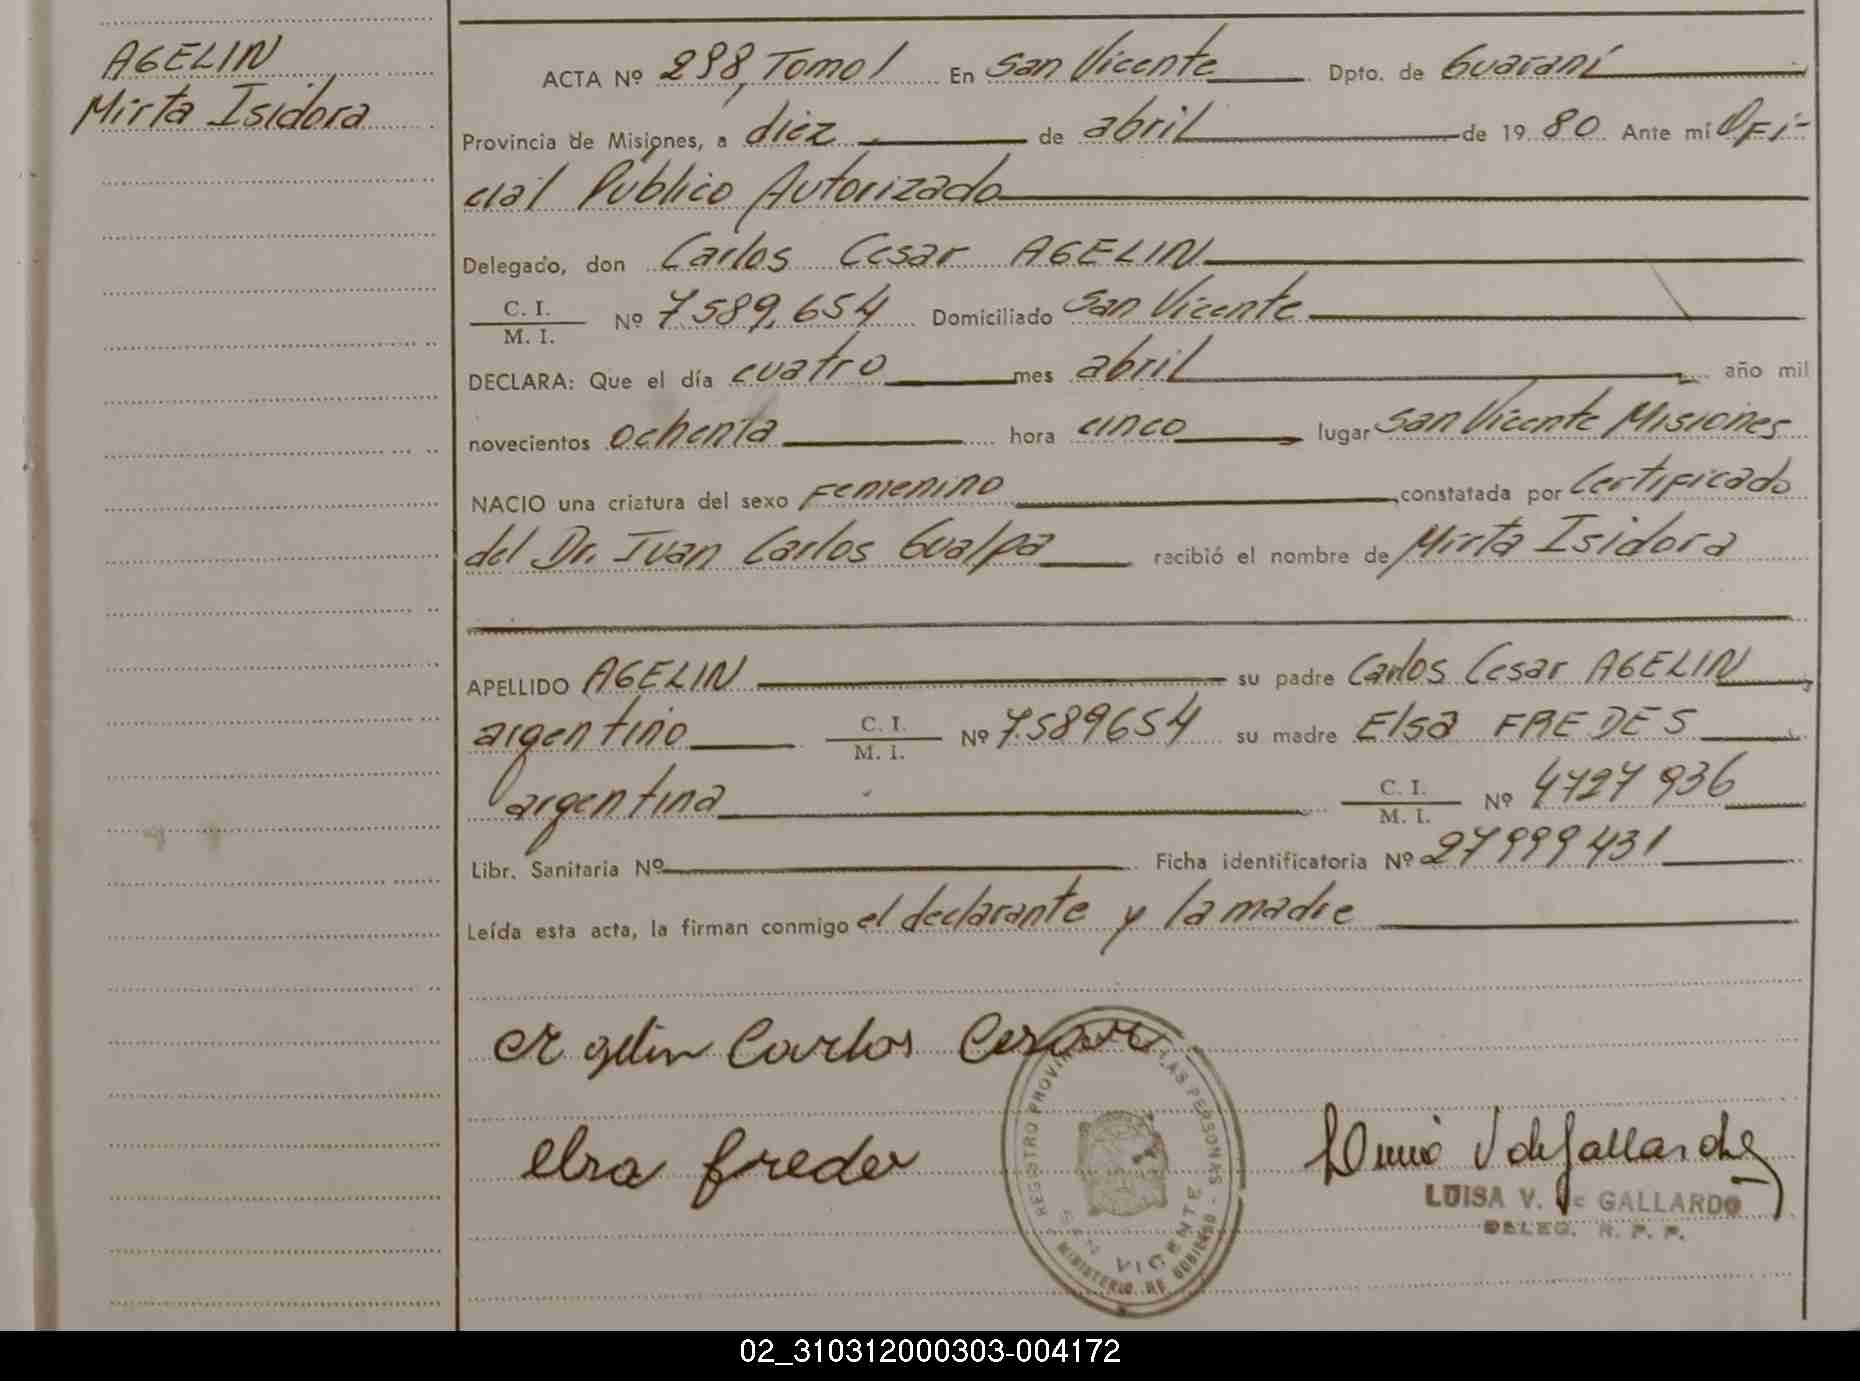 AGELIN
Mirta Isidora
ACTA Nº 298, Tomo I En San Vicente Dpto. de Guaraní
Provincia de Misiones, a diez de abril de 1980 Ante mí Ofi-
cial Público Autorizado
Delegado, don Carlos Cesar AGELIN
C. I.
M. I. Nº 7589.654 Domiciliado San Vicente
DECLARA: Que el día cuatro mes abril año mil
novecientos ochenta hora cinco lugar San Vicente Misiones
NACIO una criatura del sexo Femenino, constatada por Certificado
del Dr. Juan Carlos Gualpa recibió el nombre de Mirta Isidora
APELLIDO AGELIN su padre Carlos Cesar AGELIN,
argentino C. I. M. I. Nº 7589654 su madre Elsa FREDES
argentina C. I. M. I. Nº 4727936
Libr. Sanitaria Nº Ficha identificatoria Nº 27999431
Leída esta acta, la firman conmigo el declarante y la madre
Agelin Carlos Cesar
elsa fredes
REGISTRO PROVINCIAL LAS PERSONAS - SAN VICENTE
MINISTERIO DE GOBIERNO
V de Gallardo
LUISA V. de GALLARDO
DELEG. R. P. P.
02_310312000303-004172